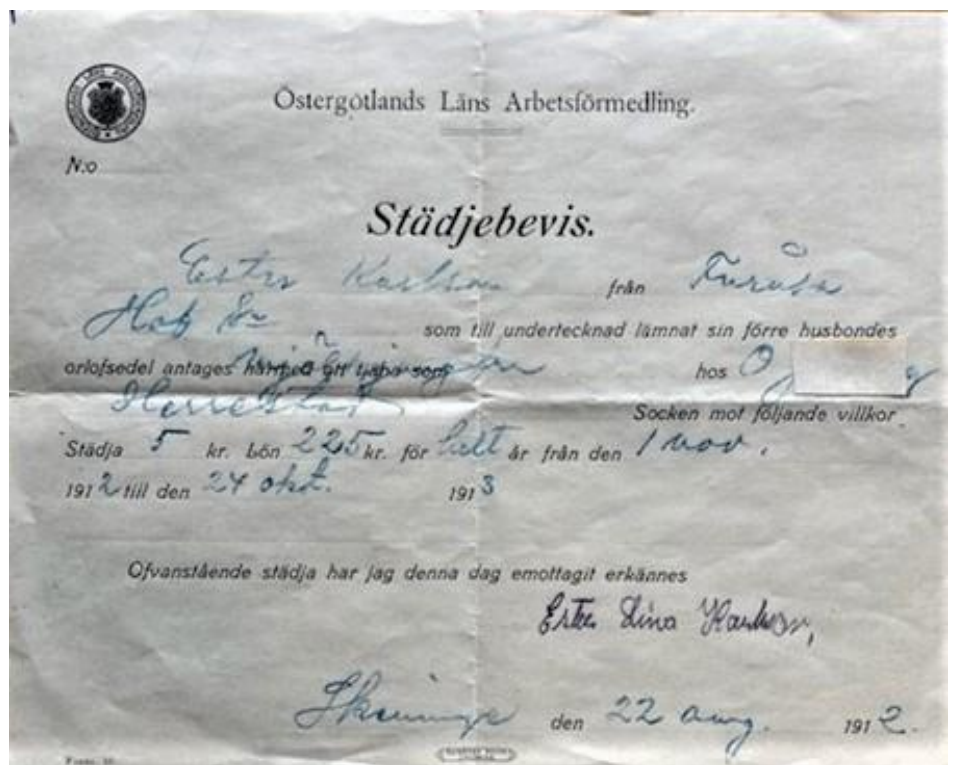 Östergötlands Läns Arbetsförmedling.
N:o
Städjebevis.
Ester Karlson från Furåsa
Hof som till undertecknad lämnat sin förre husbondes
orlofsedel antages hos O
Herrestad Socken mot följande villkor
Städja 5 kr. Lön 225 kr. för helt år från den 1 nov.
1912 till den 24 okt. 1913
Ofvanstående städja har jag denna dag emottagit erkännes
Ester Lina Karlson,
Skeninge den 22 aug. 1912.